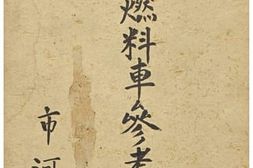 燃料車參考
市河